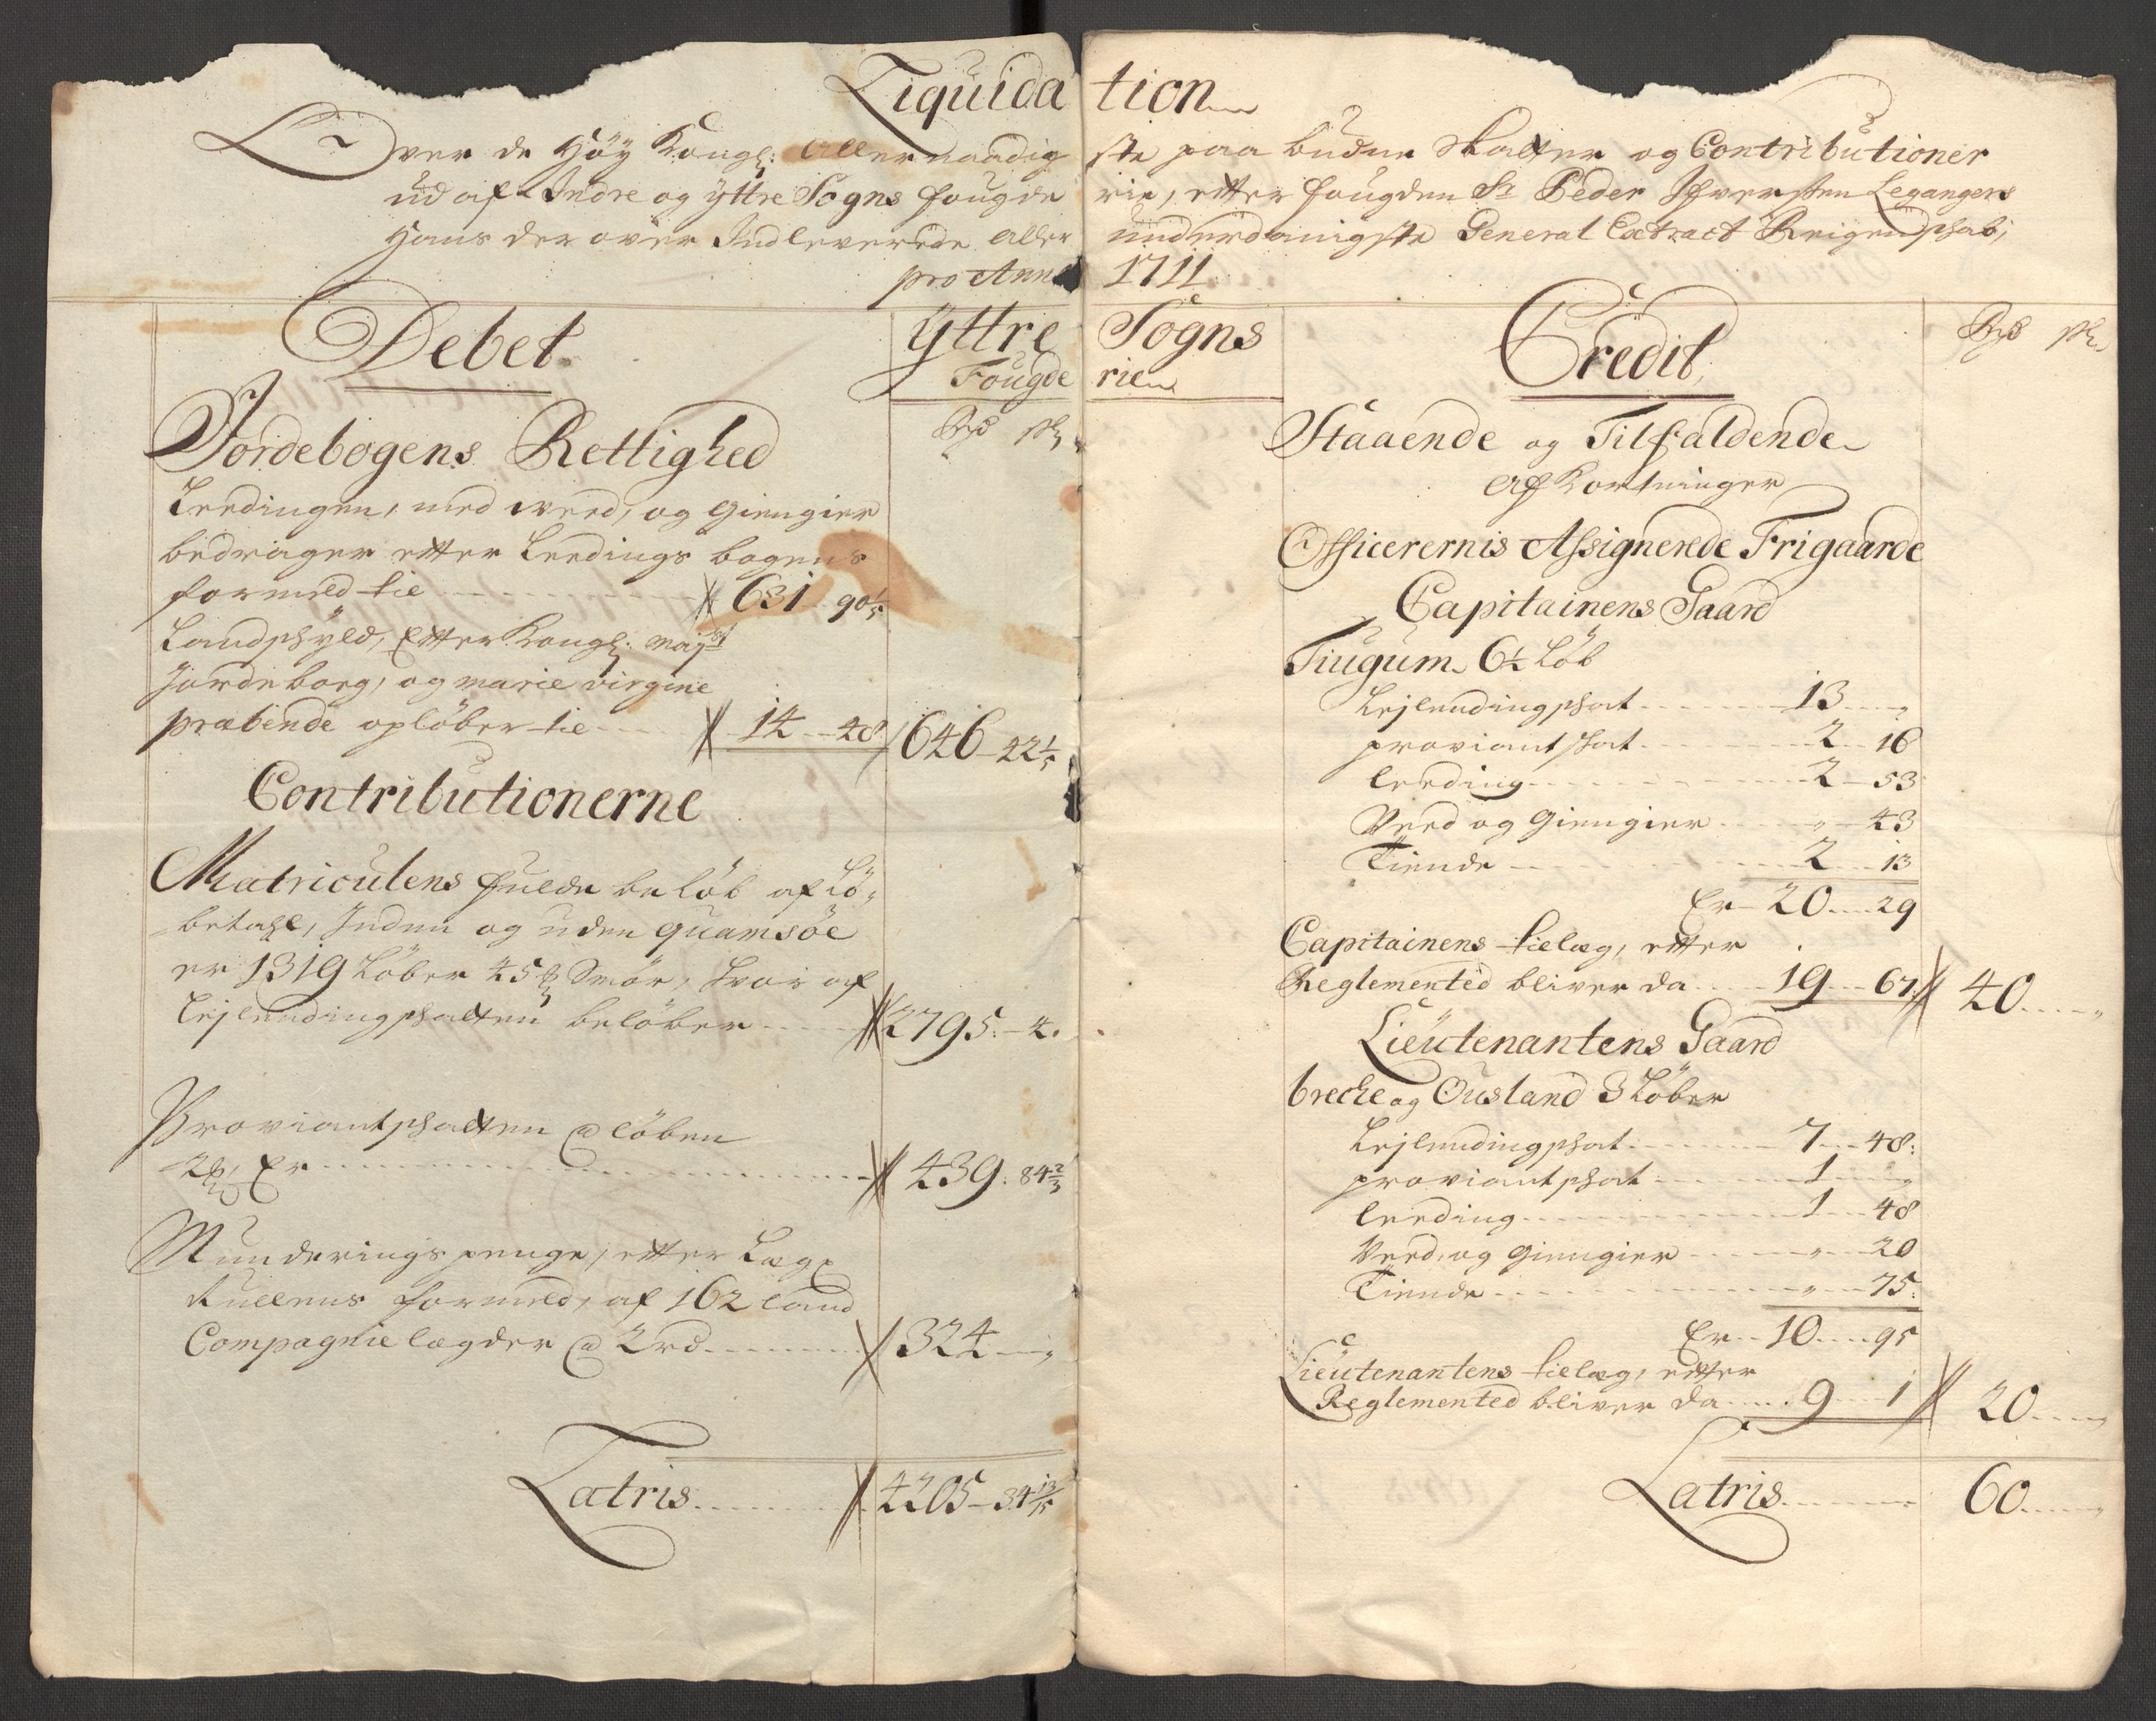 Liquidation
Over de Høy Kongl: Allernaadigste paa budne Skatter og Contributioner
ud af Indre og Yttre Sogns fougderie, etter fougden Sr Peder Iffversen Legangers
Hans der over Indleverede aller underdanigste General Extract Reigenschab,
pro Anno 1711
Debet
Yttre Sogns
Fougderie
Rd s
Jordebogens Rettighed
Leedingen, med Weed, og giengier
bedrager etter Leedings bogens
formeld til 631 90 1/5
Landschyld, Etter Kongl: Maj:ts
Jordeborg, og marie virgine
præbende opløber til 14 48 646 42 1/5
Contributionerne
Matriculens fulde beløb af Lø-
betahl, Inden og uden quamsöe
er 1319 Løber 45 Smør, hvor af
Lejlendingschatten beløber 2795 4
Proviantschatten a løben
Er 439 84 2/3
Munderings penge, etter Læg
Rullens formeld, af 162 land
Compagnie lægder a 2 rd 324
Latris 4205 34 13/15
Credit
Rd s
Staaende og Tilfaldende
Afkortninger
Officerernis Assignerede Frigaarde
Capitainens Gaard
Tiugum 6 1/2 Løb
Lejlendingschat 13
proviantschat 2 16
leeding 2 53
Weed og giengier 43
Tiende 2 13
Er 20 29
Capitainens tillæg, etter
Reglemented bliver da 19 67 40
Lieutenantens Gaard
breche og Ousland 3 Løber
Lejlendingschat 7 48
proviantschat 1
leeding 1 48
Weed, og giengier 20
Tiende 75
Er 10 95
Lieutenantens tillæg, etter
Reglemented bliver da 9 1 20
Latris 60